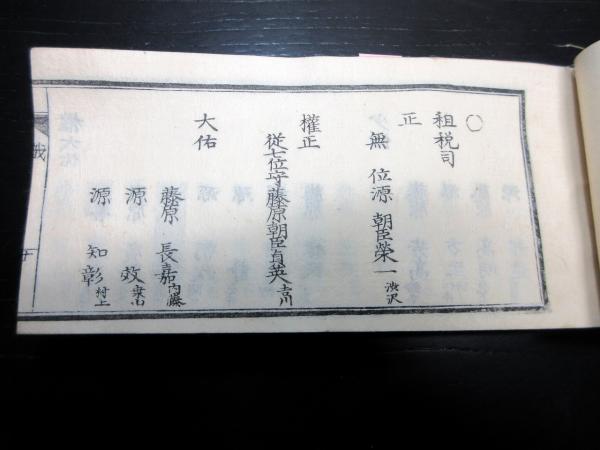 〇
租税司
正
無位源朝臣榮一 渋沢
權正
従七位守藤原朝臣貞英 吉川
大佑
藤原長嘉 内藤
源效
源知彰 村上